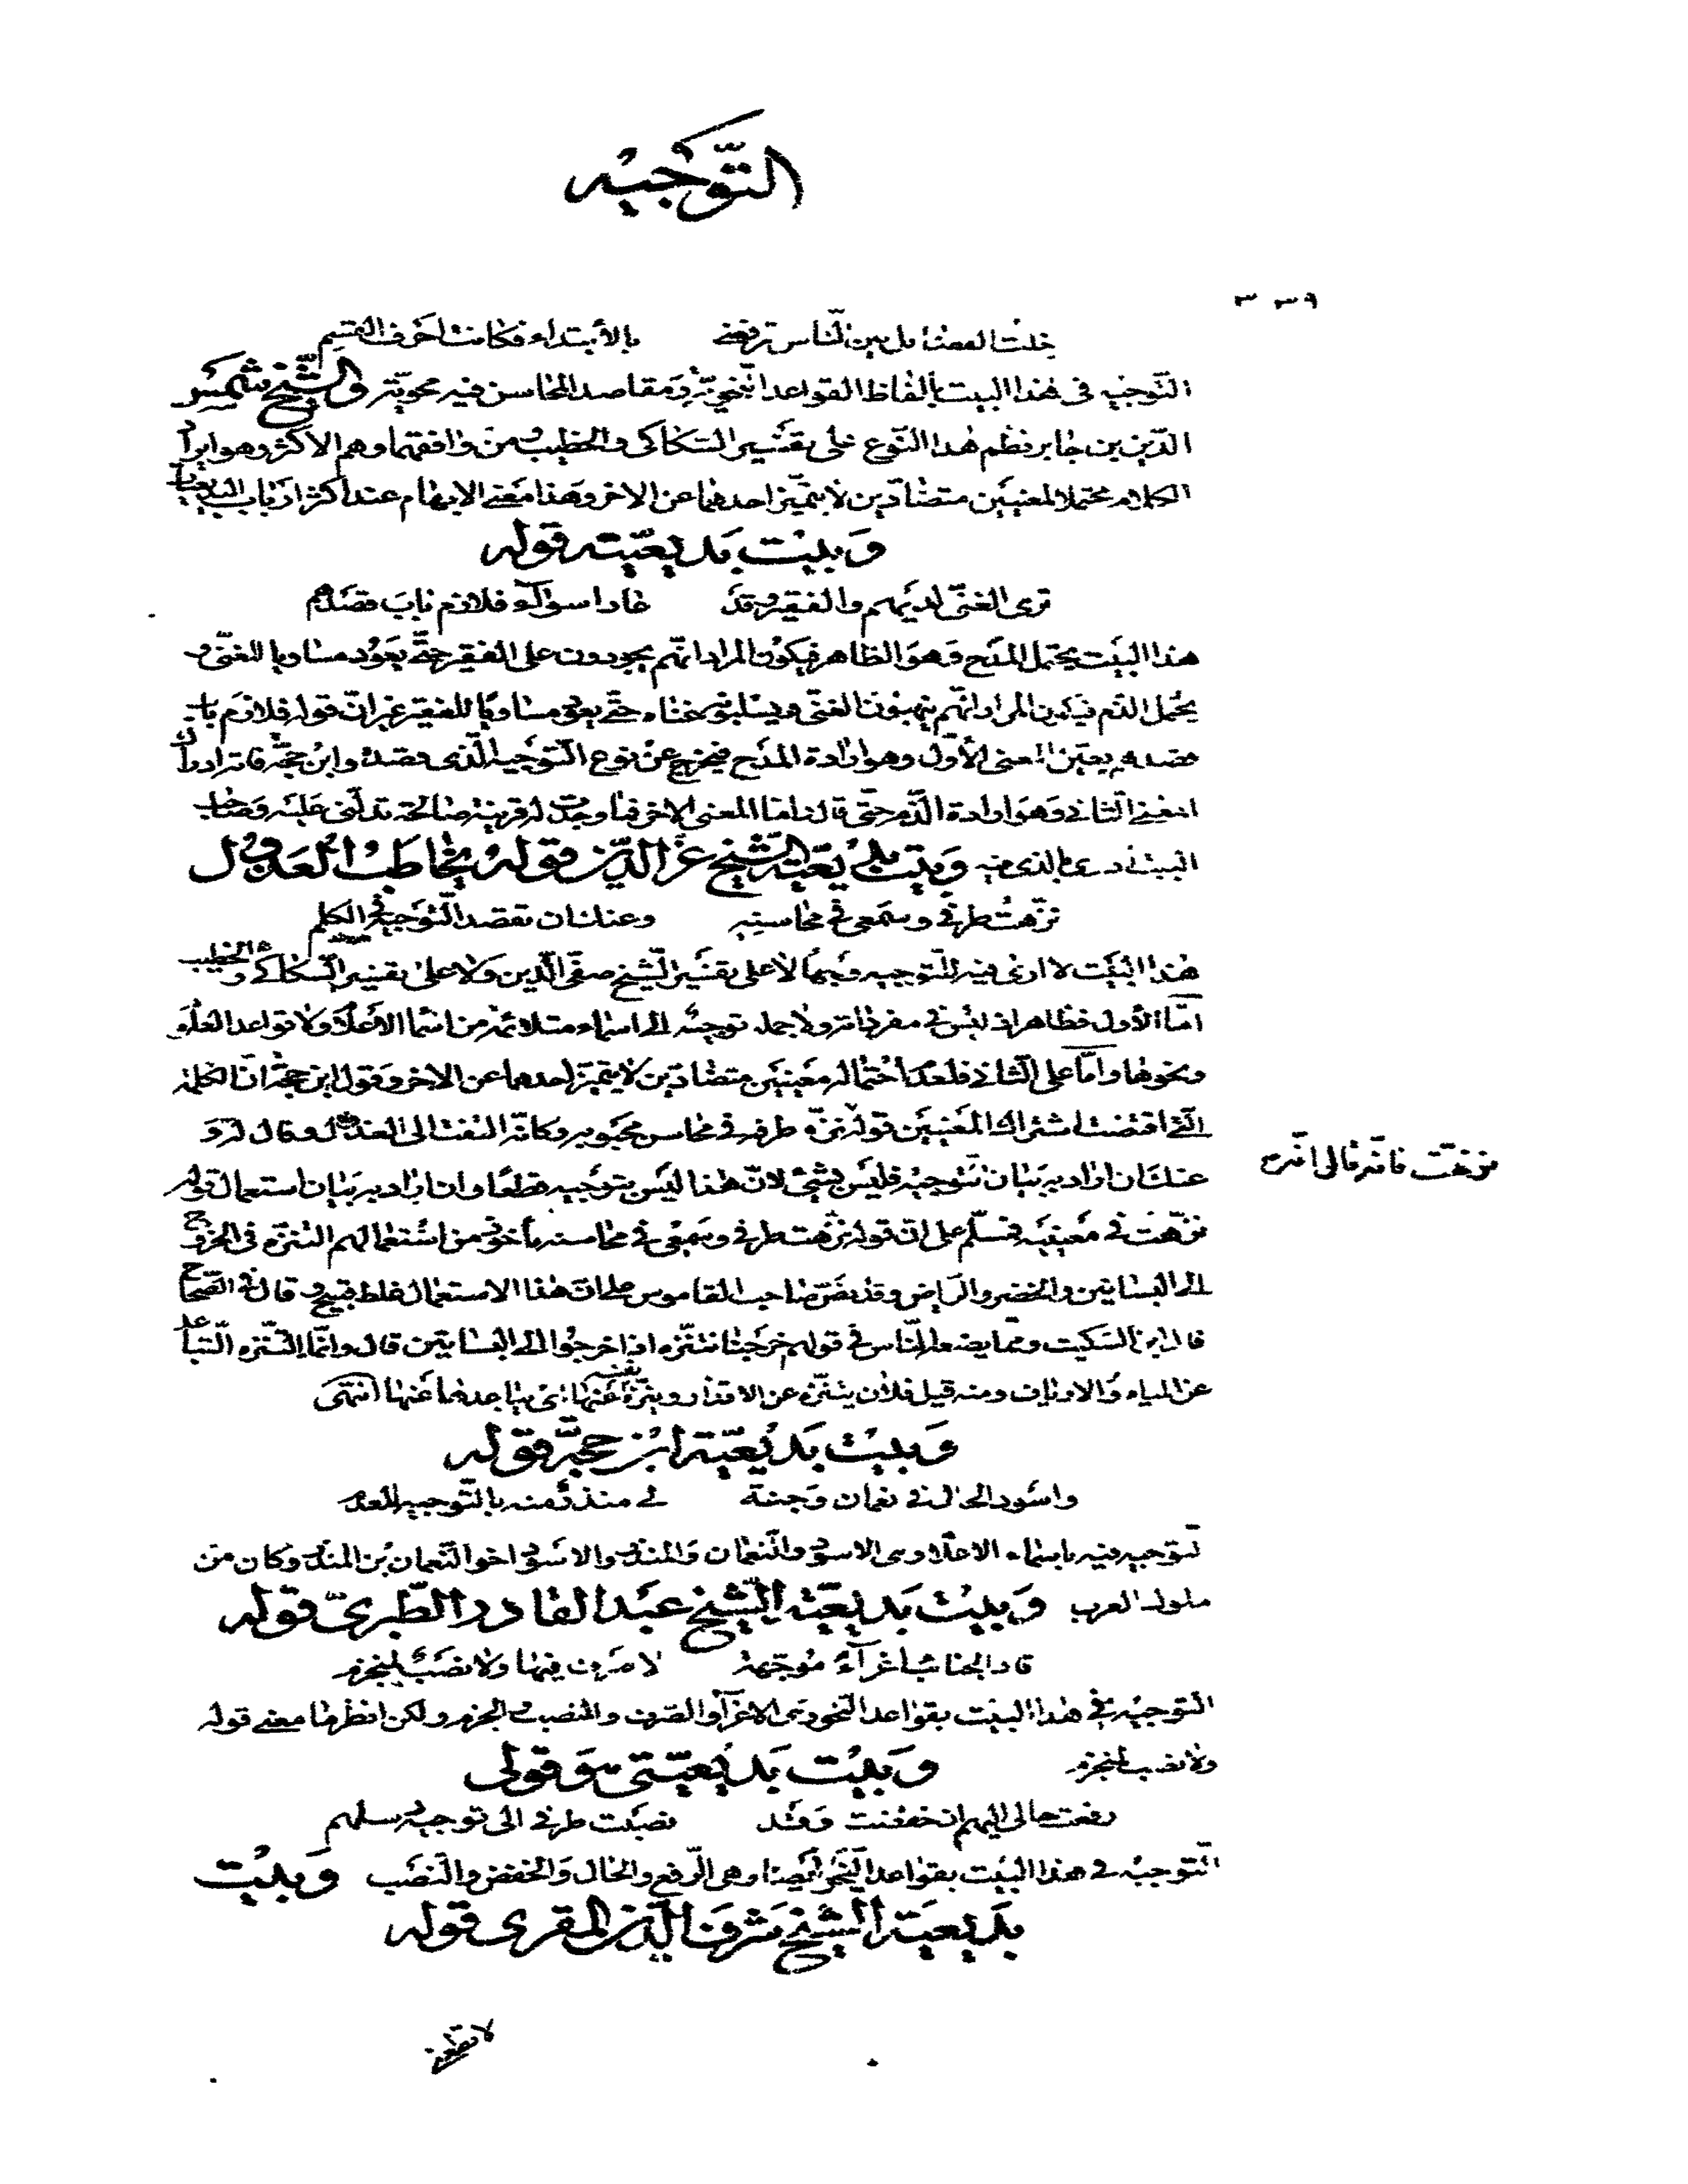 التّوجيه
٣٣٩
خلت الفضائل بين النّاس ترفعني بالأبتداء فكانت احرف القسم
التّوجيه في هذا البيت بألفاظ القواعد النّحويّة ومقاصد المحاسن فيه محويّة والشّيخ شمس
الدّين بن جابر نظم هذا النّوع على تفسير السّكاكي والخطيب ومن وافقهما وهم الاكثر وهو ايراد
الكلام محتملا لمعنيين متضادّين لا يتميّز احدهما عن الاخر وهذا معنى الابهام عند اكثر ارباب البديعيات
وبيت بديعيّته قوله
ترى الغنيّ لديهم والفقير وقد عادا سواء فلازم باب قصدهم
هذا البيت يحتمل المدح وهو الظاهر فيكون المراد انّهم يجودون على الفقير حتّى يعود مساويا للغنيّ و
يحتمل الذم فيكون المراد انّهم ينهبون الغنيّ ويسلبونه غناه حتّى يعود مساويًا للفقير غير انّ قوله فلازم باب
قصدهم يعيّن المعنى الأوّل وهو ارادة المدح فيخرج عن نوع التّوجيه الّذي قصده وابن حجّة قال انه اراد
المعنى الثّاني وهو ارادة الذّم حتّى قال امّا المعنى الاخر فما وجدت له قرينة صالحة تدلّني عليه وصاحب
البيت ادرى بالذي فيه وبيت بديعيّة الشّيخ عزّ الدّين قوله يخاطب العذول
نزّهت طرفي وسمعي في محاسنه وعنك ان تقصد التّوجيه في الكلم
هذا البيت لا ارى فيه للتّوجيه وجها لا على تفسير الشّيخ صفيّ الدّين ولا على تفسير السّكاكي والخطيب
امّا الأول فظاهر اذ ليس في مفرداته ولا جمله توجيه الى اسماء متلائمة من اسماء الأعلام ولا قواعد العلوم
ونحوها وامّا على الثّاني فلعدم احتماله معنيين متضادّين لا يتميّز احدهما عن الاخر وقول ابن حجّة انّ الكلمة
الّتي اقتضت اشتراك المعنيين قوله نزّه طرفه في محاسن محبوبه وكانّه التفت الى العذول وقال له و
نزهت فانه قال انه
عنك ان اراد به بيان التّوجيه فليس بشيء لانّ هذا ليس بتوجيه قطعًا وان اراد به بيان استعمال قوله
نزّهت في معنييه فمسلّم على انّ قوله نزّهت طرفي وسمعي في محاسنه مأخوذ من استعمالهم التنزّه في الخروج
الى البساتين والخضر والرّياض وقد نصّ صاحب القاموس على انّ هذا الاستعمال غلط قبيح وقال في الصّحاح
قال ابن السّكيت وممّا يضعه النّاس في غير موضعه قولهم خرجنا نتنزّه اذا خرجوا الى البساتين قال وانّما التّنزّه التّباعد
عن المياه والارياف ومنه قيل فلان يتنزّه عن الاقذار وينزّه نفسه عنها اي يباعدها عنها انتهى
وبيت بديعيّة ابن حجّة قوله
واسود الخال في نعمان وجنته لي منذر منه بالتّوجيه للعدم
التوجيه فيه باسماء الاعلام وهي الاسود والنّعمان والمنذر والاسود اخو النّعمان بن المنذر وكان من
ملوك العرب وبيت بديعيّة الشّيخ عبد القادر الطّبريّ قوله
قاد الجناس اغراء موجّهة لا صرف فيها ولا نصب لمنجزم
التّوجيه في هذا البيت بقواعد النّحو وهي الاغراء والصّرف والنصب والجزم ولكن انظر ما معنى قوله
ولا نصب لمنجزم وبيت بديعيّتي هو قولي
رفعت حالي اليهم اذ خفضت وقد نصبت طرفي الى توجيه رسلهم
التّوجيه في هذا البيت بقواعد النّحو ايضا وهي الرّفع والحال والخفض والنّصب وبيت
بديعيّة الشيخ شرف الدّين المقرى قوله